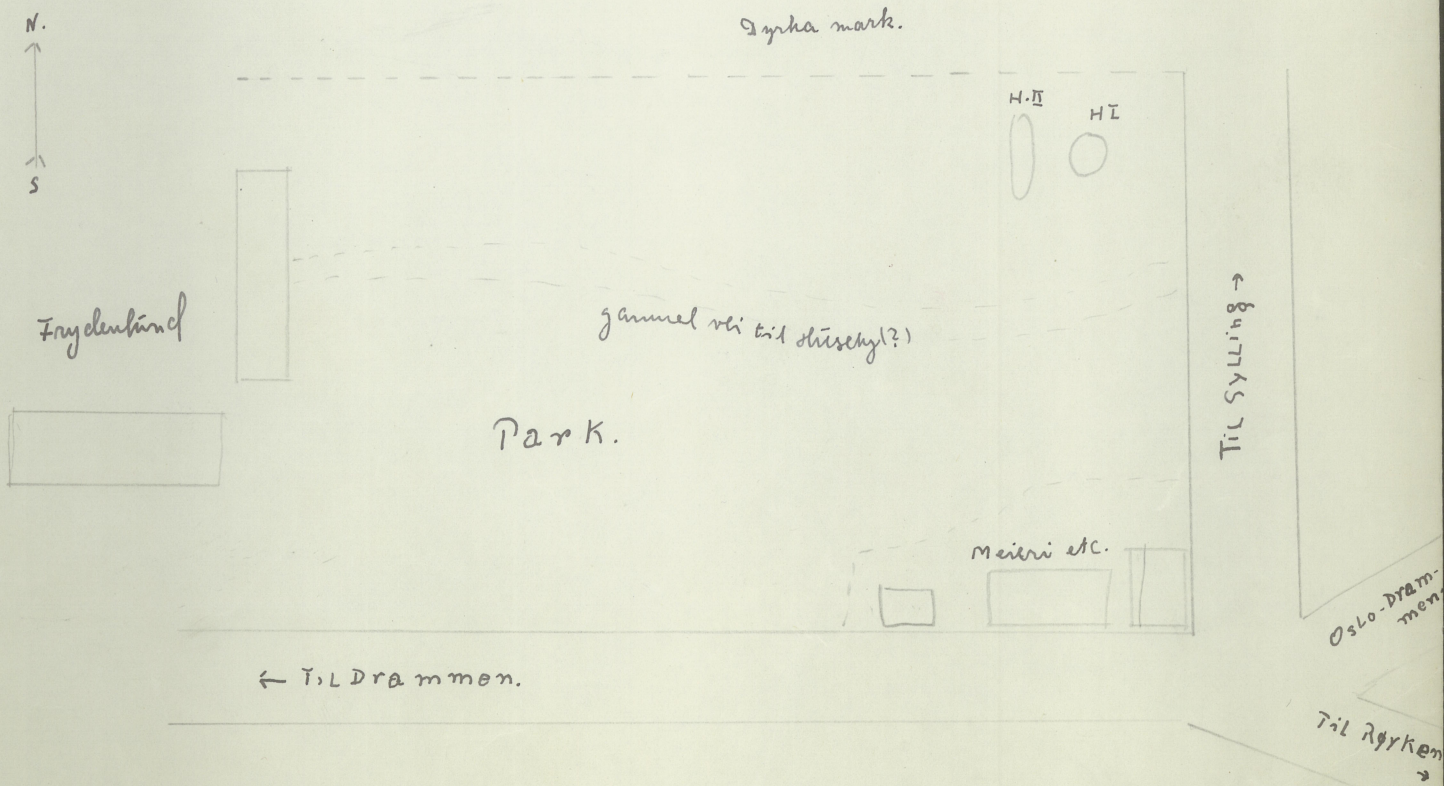 N.
S
Dyrka mark.
H.II
H I
Frydenlund
gammel vei til Huseby(?)
Til Sylling →
Park.
Meieri etc.
Oslo-Dram-
men.
← Til Drammen.
Til Røyken
→